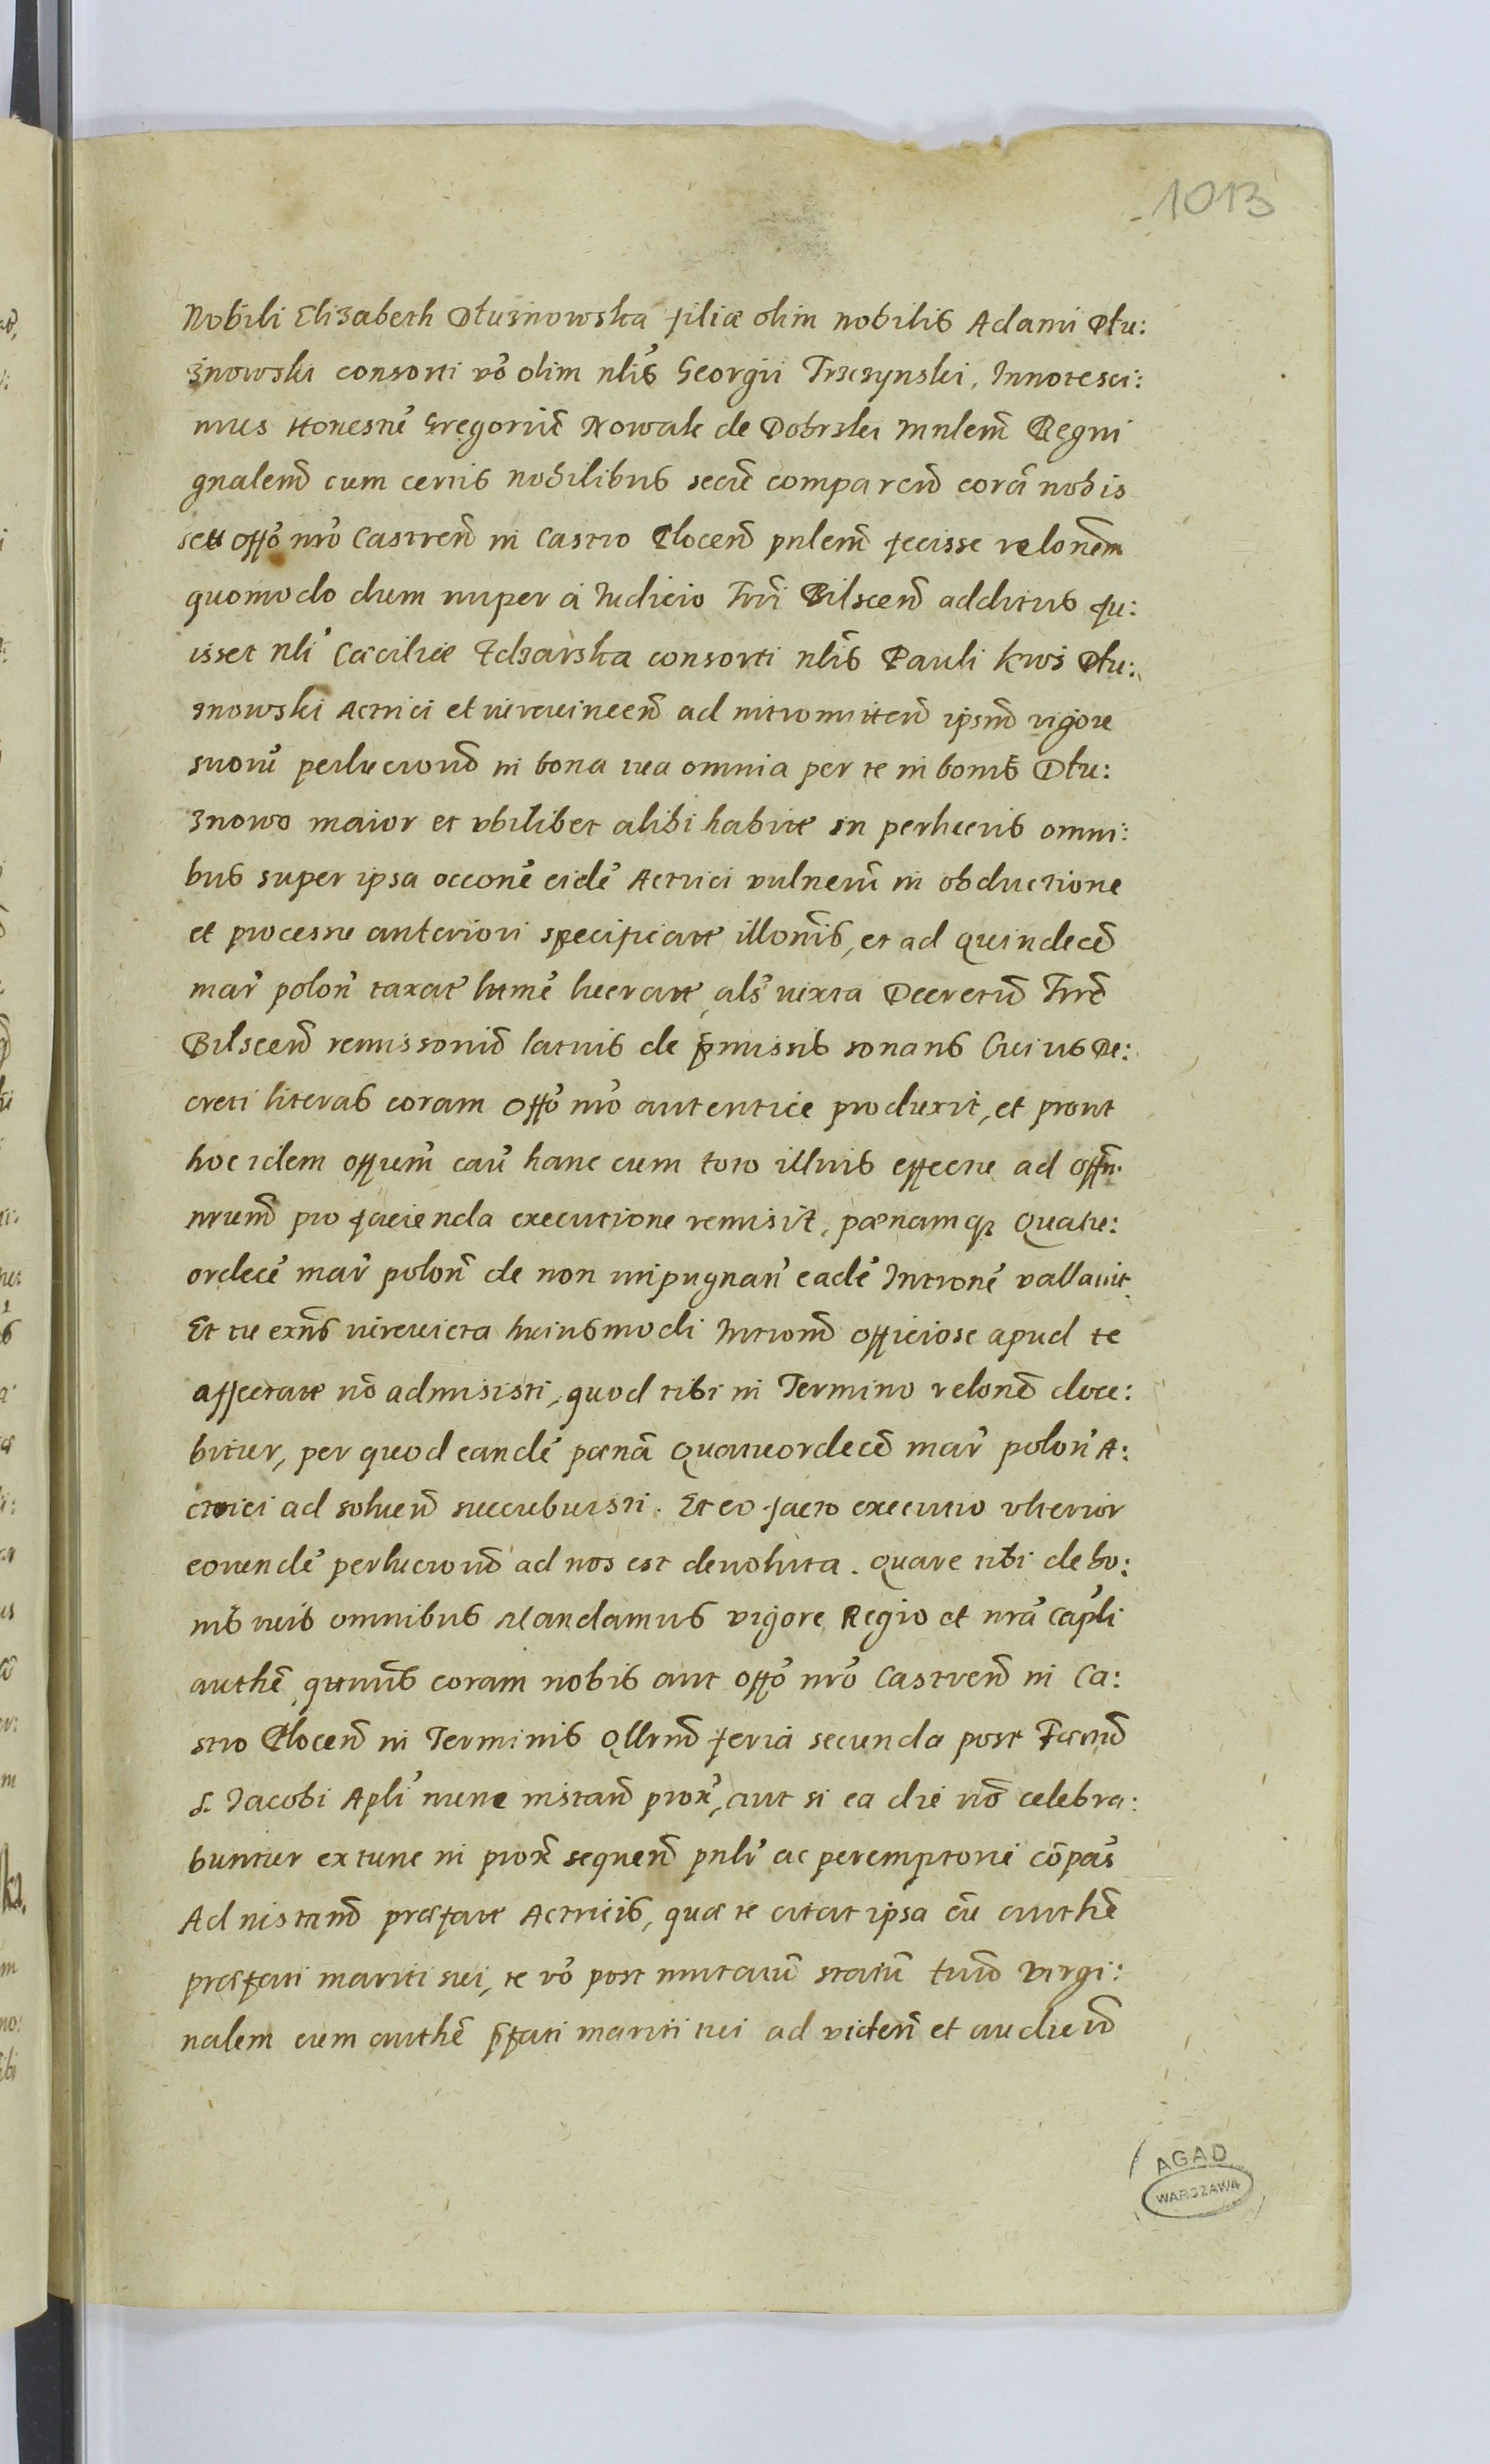 1013
Nobili Elizabeth Dłuznowska filiæ olim nobilis Adami Dłu:
znowski consorti vo olim nlis Georgii Trzczynski, Innotesci:
mus Honestu Gregoriu Nowak de Dobrski mnlem Regni
gnalem cum certis nobilibus secu comparen cora nobis
seu offo nro Castren in Castro Plocen pnlem fecisse relonem
quomodo dum nuper a Iudicio Trri Bilscen additus fu:
isset nli Cæciliæ consorti nlis Pauli Kros Dłu:
znowski Actrici et iurevincen ad intromitten ipsm vigore
suoru perlucroru in bona tua omnia per te in bonis Dłu:
znowo maior et vbilibet alibi habite in perlucris omni:
bus super ipsa occone eide Actrici vulneru in obductione
et processu anteriori specificate illonis, et ad quindece
mar polon taxate ltme lucrate, als iuxta Decretu Trre
Bilscen remissoriu latius de pmissis sonans Cuius De:
creti literas coram Offo nro autentice produxit, et prout
hoc idem offium cau hanc cum toto illius effectu ad offm
nrum pro facienda executione remisit, pænamq Quatu:
ordece mar polon de non impugnan eade Introne vallauit
Et tu exns iurevicta huiusmodi Introm officiose apud te
affectate no admisisti, quod tibi in Termino relone doce:
bitur, per quod eande pæna Quatuordece mar polon A:
ctrici ad soluen succubuisti. Et eo facto executio vlterior
eorunde perlucroru ad nos est deuoluta. Quare tibi de bo:
nis tuis omnibus Mandamus vigore Regio et nra Capli
authe, qtenus coram nobis aut offo nro Castren in Ca:
stro Plocen in Terminis Qllrum feria secunda post Festum
S. Iacobi Apli nunc instan prox, aut si ea die no celebra:
buntur ex tunc in prox sequen pnlr ac peremptorie copas
Ad instan præfate Actricis, quæ te citat ipsa cu authe
præfati mariti sui, te vo post mutatu statu tuu virgi:
nalem cum authe pfati mariti tui ad viden et audien
AGAD
WARSZAWA